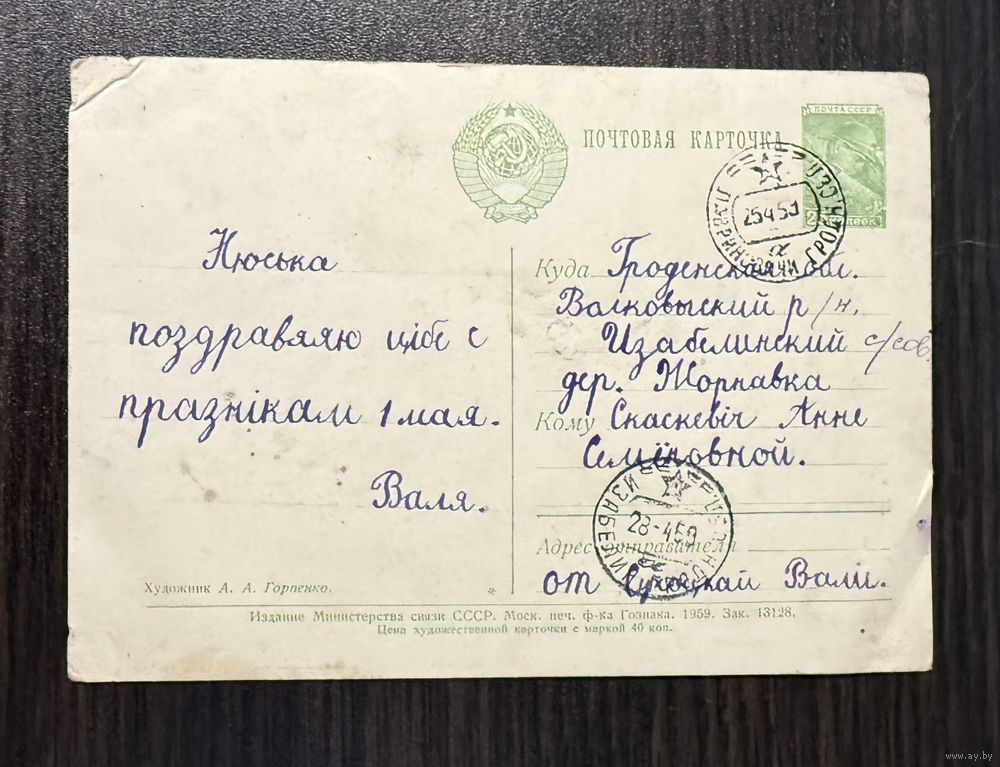 ПОЧТОВАЯ КАРТОЧКА
ПОЧТА СССР
25 4 59
Нюська
поздравляю цібе с
празнікам 1 мая.
Валя.
Куда Гроденская обл.
Волковыский р/н.
Изабелинский с/сов.
дер. Жорнавка
Кому Скаскевіч Анне
Семіновной.
28-4 59
Адрес отправителя
от Валі.
Художник А. А. Горпенко.
Издание Министерства связи СССР. Моск. печ. ф-ка Гознака. 1959. Зак. 13128.
Цена художественной карточки с маркой 40 коп.
www.ay.by